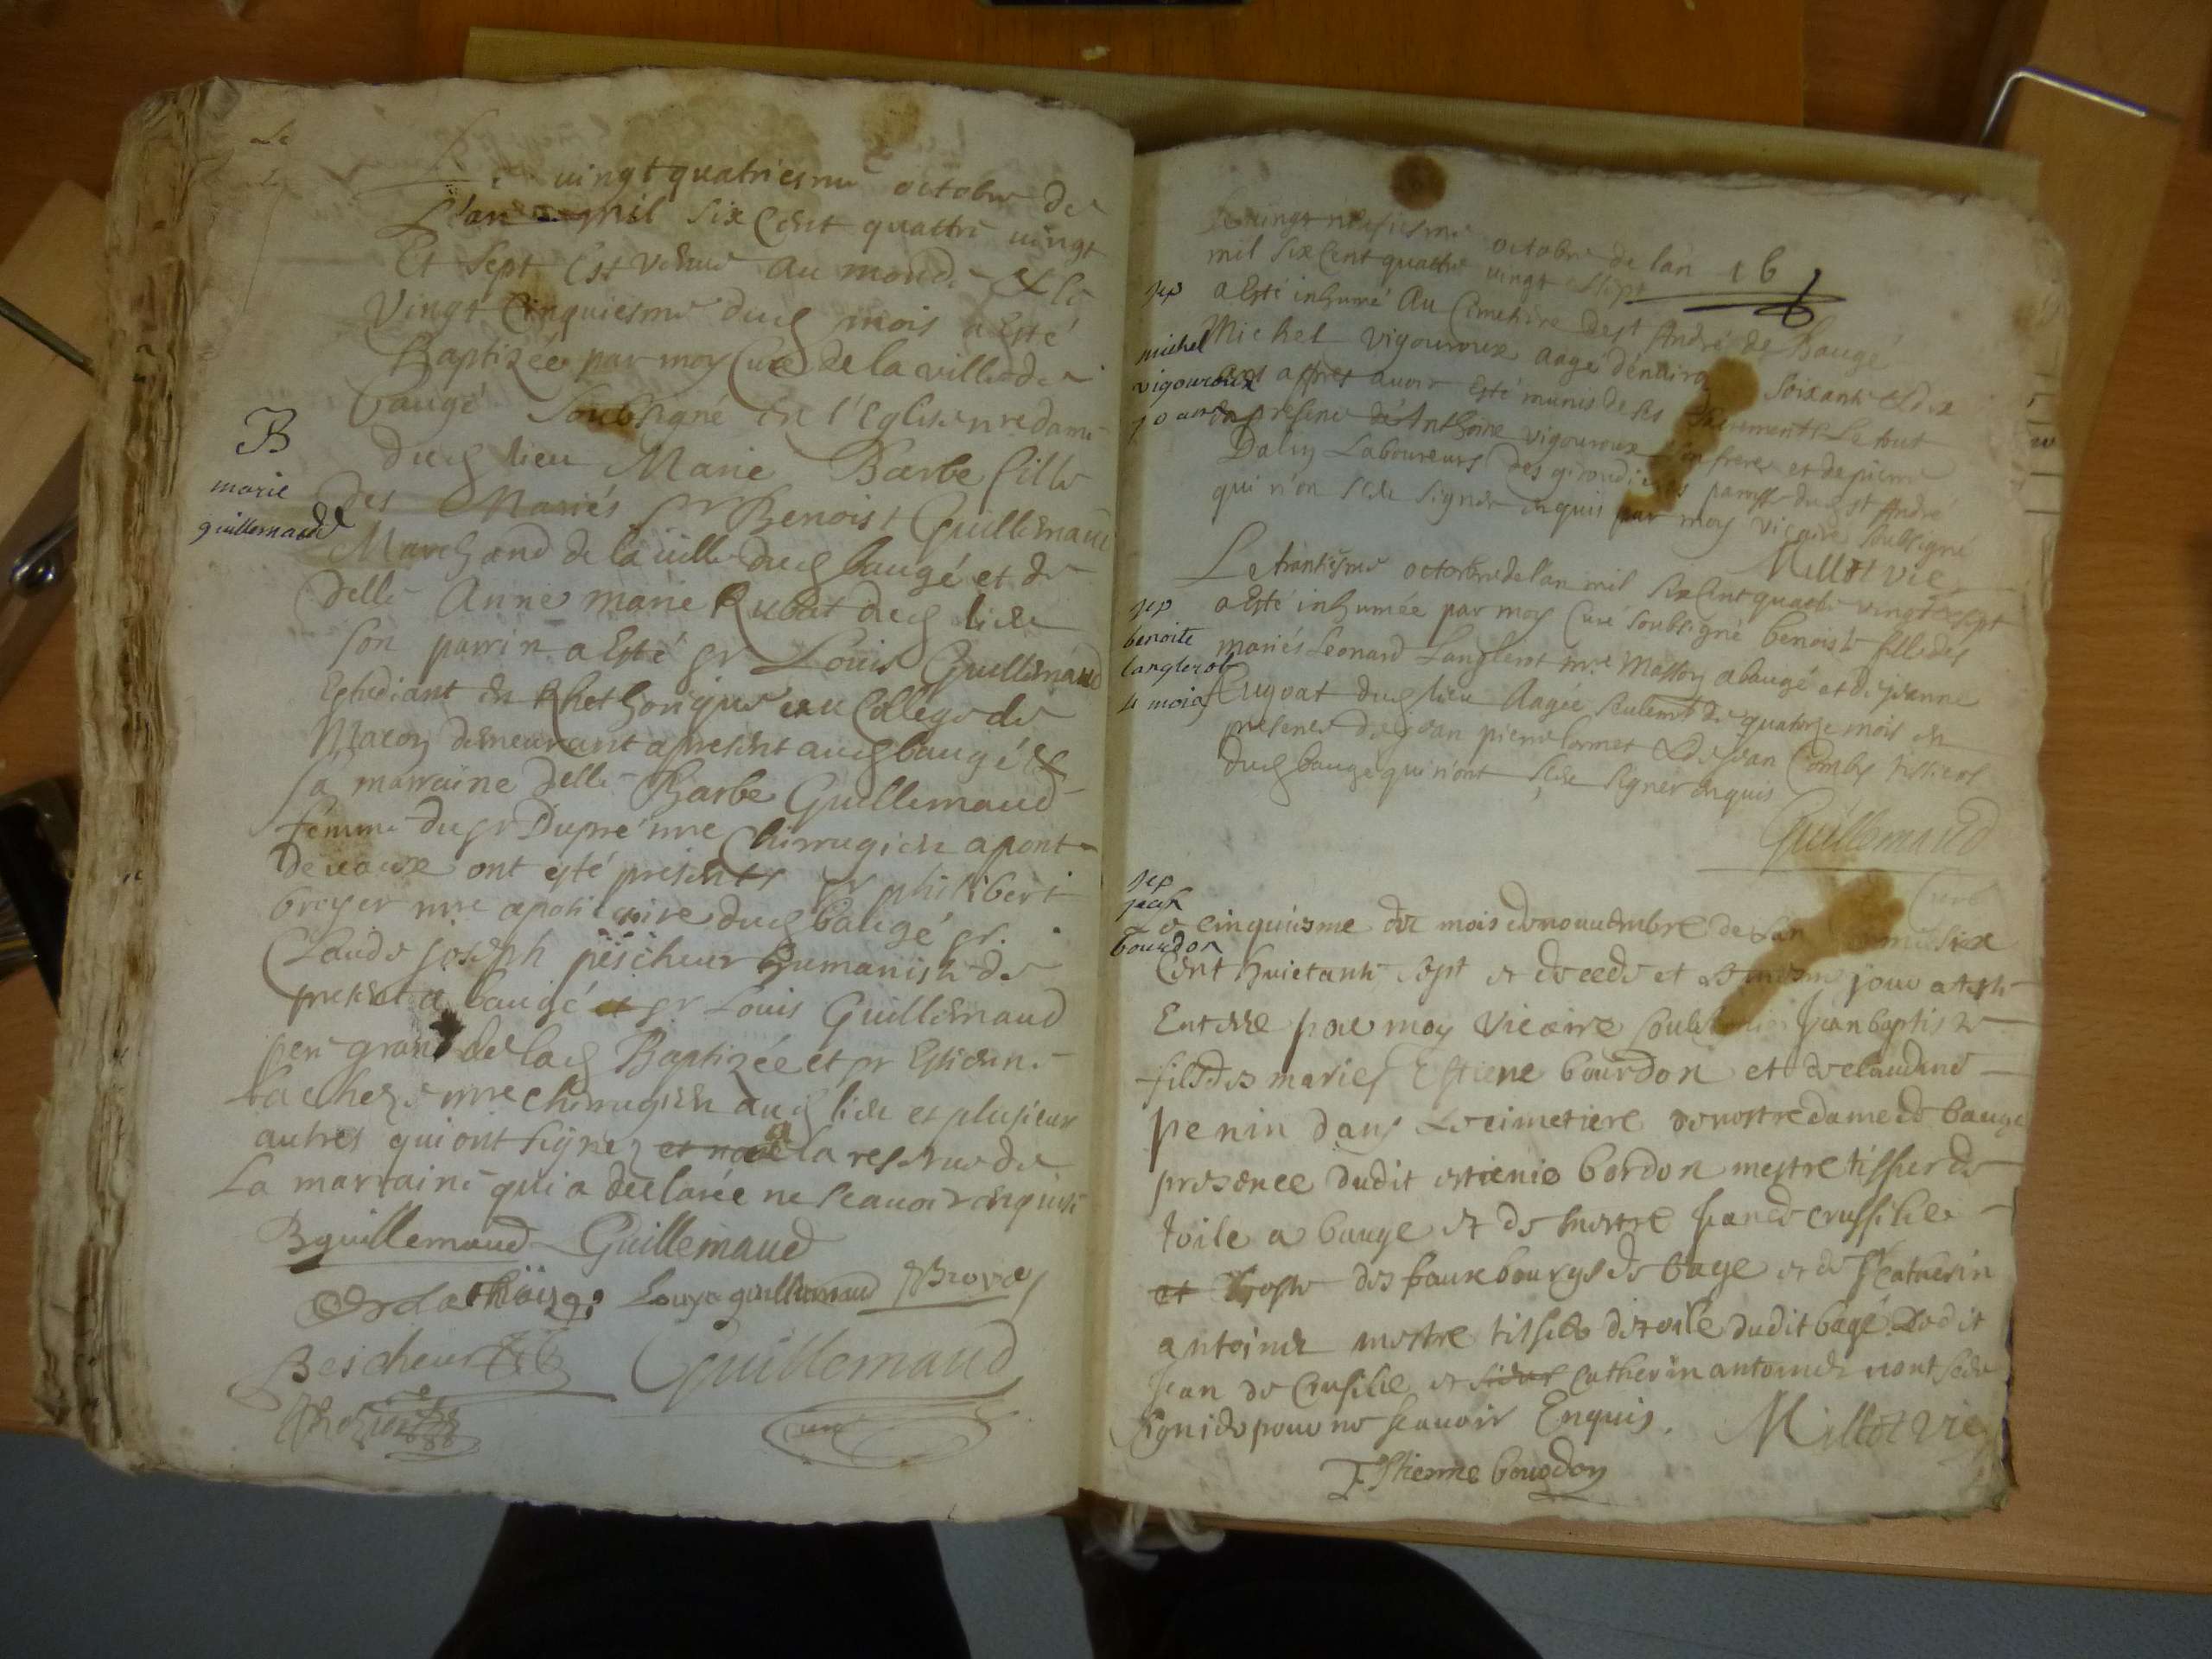 Le vingt quatriesme octobre de
L'an mil six Cent quattre vingt
Et sept Est venue au monde & le
Vingt Cinquiesme dud mois a Esté
Baptizée par moy Curé de la ville de
baugé soubsigné en l'Eglise nre dame
dud lieu Marie Barbe fille
B
marie
guillemaud
des Mariés sr Benoist Guillemaud
Marchand de la ville dud baugé et de
delle Anne marie Rubat dud lieu
son parrin a Esté sr Louis Guillemaud
Estudiant en Rhethorique au College de
Macon demeurant a present aud baugé &
sa marraine delle Barbe Guillemaud
femme du sr Dupré mre Chirrugien a pont
devaux ont esté presents sr philibert
broyer mre apoticaire dud baugé sr
Claude joseph pescheur humaniste de
present a baugé et sr Louis Guillemaud
pere grand de lad Baptizée et sr Estienne
mre chirrugien aud lieu et plusieur
autres qui ont signez la reserve de
La marraine qui a declarée ne scavoir enquise
Bguillemaud Guillemaud
Louys guillemaud
Guillemaud
curé
16
Le vingt octobre de lan
mil six Cent quattre vingt et sept
sep
michel
vigouroux
70 ans
a Esté inhumé Au Cimetiere de st André de Baugé
Michel vigouroux aagé denviron soixante et dix
ans apres avoir Esté munis de ses Sacrements Le tout
en presence de Anthoine vigouroux son frere et de pierre
Dalin Laboureurs des paroisse dud st André
qui n'on sceu signer enquis par moy vicaire soubsigné
Millot vic
Le trantiesme octobre de lan mil six Cent quattre vingt et sept
sep
benoite
langlerot
4 mois
a Esté inhumée par moy Curé soubsigné benoiste fille des
mariés Leonard Langlerot mre Masson a baugé et de jeanne
dud lieu Aagée seulemt de quatorze mois en
presence de jean pierre et de jean Comby tissiers
dud baugé qui n'ont sceu signer enquis
Guillemaud
Curé
sep
jean
bourdon
Le cinquiesme du mois de nouvembre de lan mil six
Cent huictante sept et decede et le mesme jour a esté
Enterre par moy Vicaire jean baptiste
fils des maries Estiene bourdon et de claudine
penin dans le cimetiere de nostre dame de bauge
presence dudit estienie bordon mestre tissier de
toile a bauge et de mestre jean de crussilie
et hoste des faux bourgs de bage et de catherin
antoine mestre tissier de toile dudit bagé. Ledit
jean de Crusilie et catherin antoine nont sceu
signé de pour ne scavoir Enquis. Millot vic
Estienne bourdon